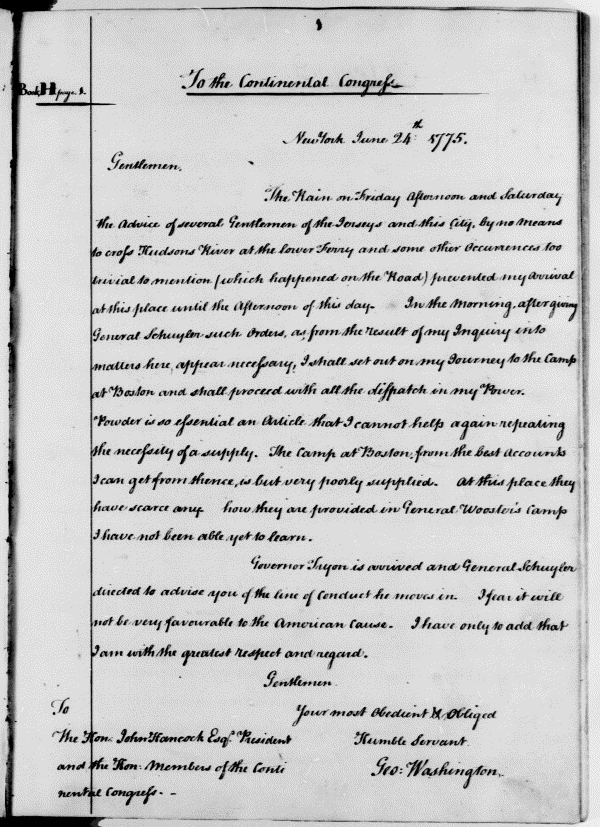 1
Book H page 1.
To the Continental Congress
New York June 24th: 1775.
Gentlemen.
The Rain on Friday Afternoon and Saturday
the Advice of several Gentlemen of the Jerseys and this City, by no means
to cross Hudsons River at the lower Ferry and some other Occurrences too
trivial to mention (which happened on the Road) prevented my Arrival
at this place until the Afternoon of this day. In the Morning, after giving
General Schuyler such Orders, as, from the result of my Inquiry into
matters here, appear necessary, I shall set out on my Journey to the Camp
at Boston and shall proceed with all the disspatch in my Power.
Powder is so essential an Article that I cannot help again repeating
the necessity of a supply. The Camp at Boston, from the best Accounts
I can get from thence, is but very poorly supplied. At this place they
have scarce any how they are provided in General Wooster's Camp
I have not been able yet to learn.
Governor Tryon is arrived and General Schuyler
directed to advise you of the line of Conduct he moves in. I fear it will
not be very favourable to the American Cause. I have only to add that
I am with the greatest respect and regard.
Gentlemen
Your most Obedient & Obliged
Humble Servant
Geo: Washington.
To
The Hon: John Hancock Esqr. President
and the Hon: Members of the Conti
nental Congress. -